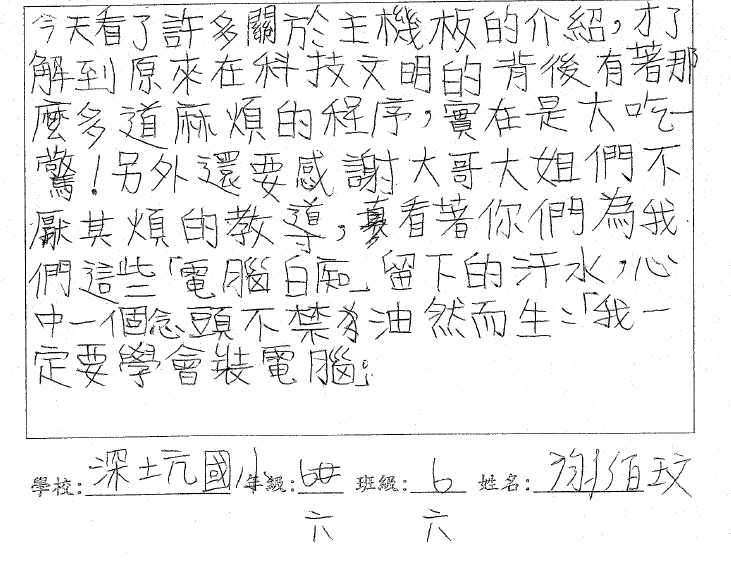 今天看了許多關於主機板的介紹,才了
解到原來在科技文明的背後有著那
麼多道麻煩的程序,實在是大吃一
驚!另外還要感謝大哥大姐們不
厭其煩的教導,看著你們為我
們這些「電腦白痴」留下的汗水,心
中一個念頭不禁油然而生:「我一
定要學會裝電腦」
學校:深坑國小 年級:六 班級:6 姓名:佰玟
六 六